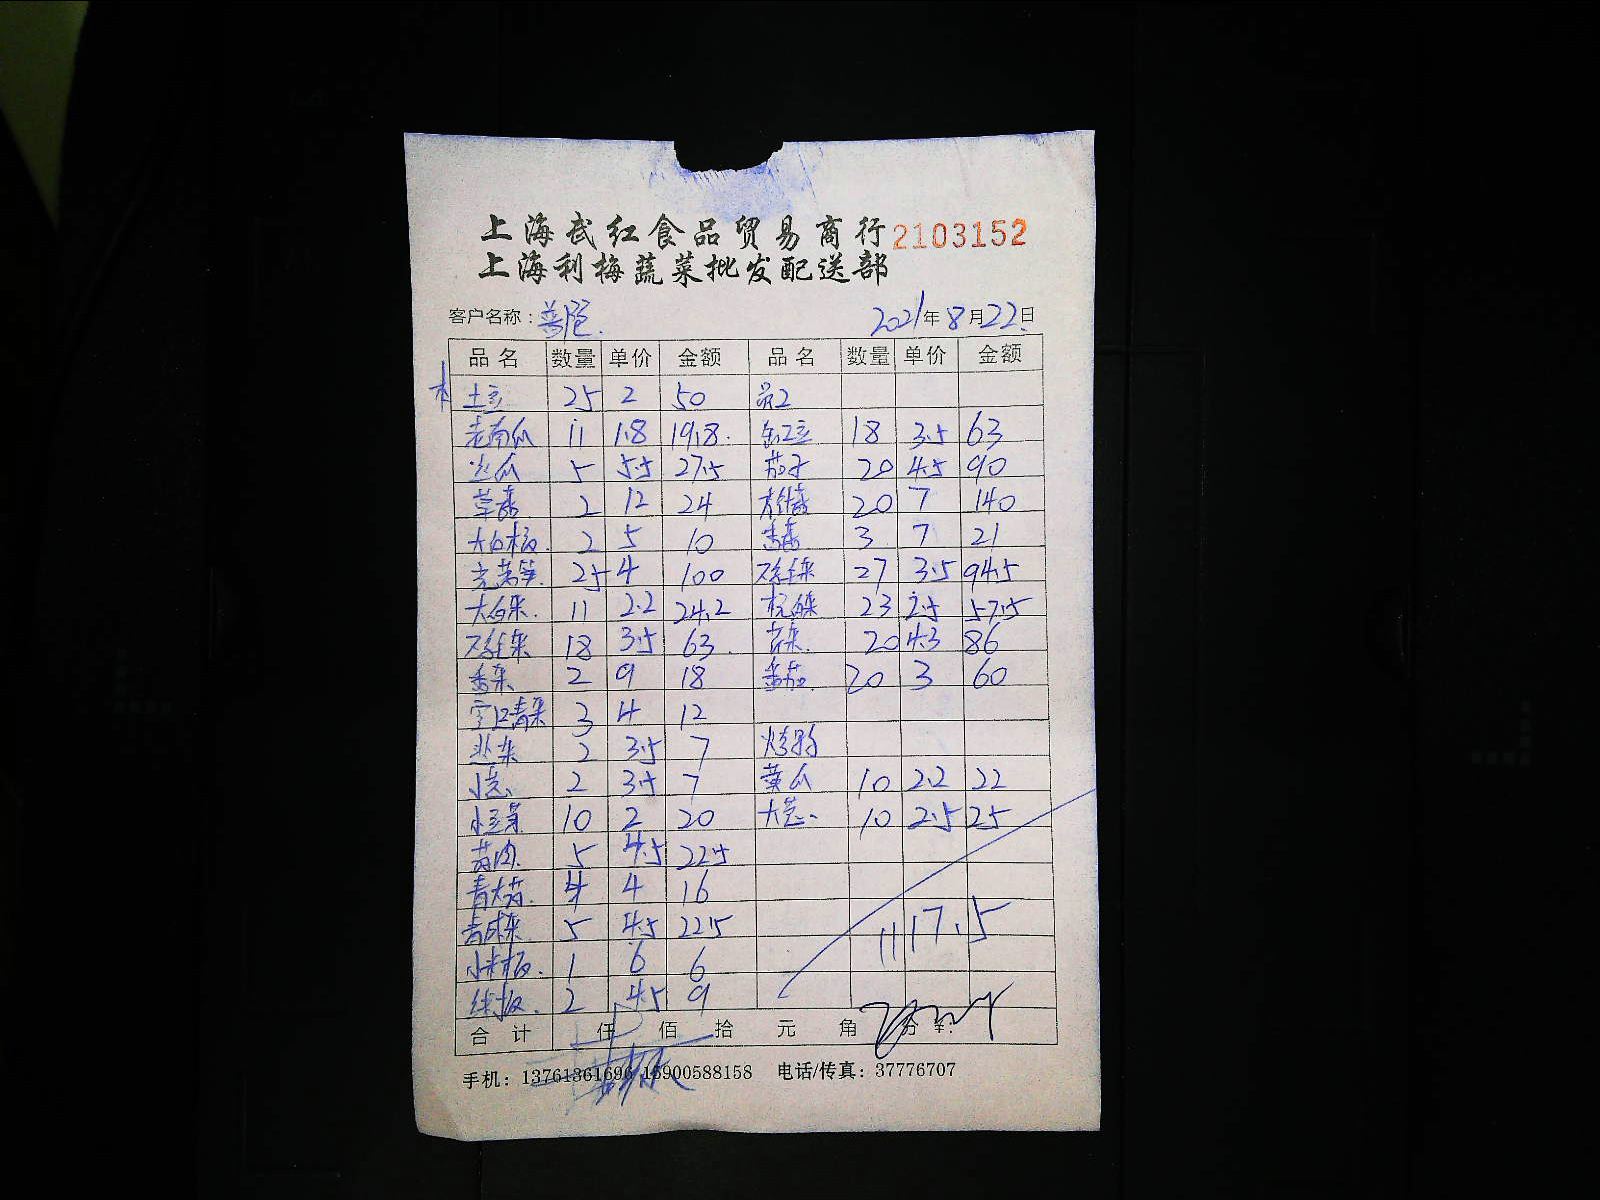 上海武红食品贸易商行 2103152
上海利梅蔬菜批发配送部
客户名称： 2021年8月22日
品名 数量 单价 金额 品名 数量 单价 金额
土豆 25 2 50
老南瓜 11 1.8 19.8. 18 3.5 63
丝瓜 5 5.5 27.5 茄子 20 4.5 90
草菇 2 12 24 20 7 140
2 5 10 香菇 3 7 21
光莴笋. 25 4 100 鸡毛菜 27 3.5 94.5
大白菜. 11 2.2 24.2 杭白菜 23 2.5 57.5
鸡毛菜 18 3.5 63. 花菜. 20 4.3 86
香菜 2 9 18 番茄. 20 3 60
青菜 3 4 12
韭菜 2 3.5 7
小葱 2 3.5 7 黄瓜 10 2.2 22
小豆芽. 10 2 20 大葱、 10 2.5 25
5 4.5 22.5
4 4 16
5 4.5 22.5 1117.5
1 6 6
2 4.5 9
合计 仟 佰 拾 元 角 分 ￥:
手机：13761361696 15900588158 电话/传真：37776707